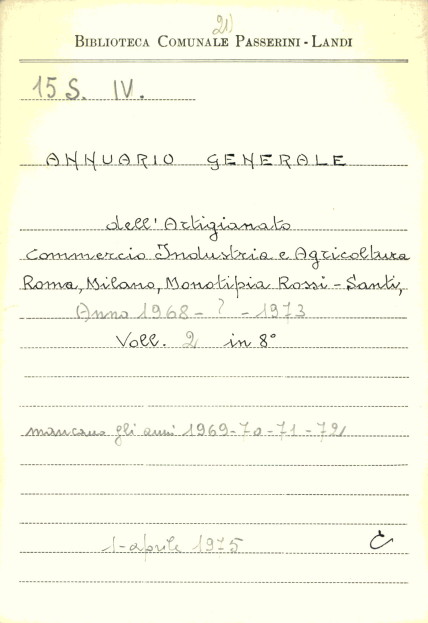 21)
BIBLIOTECA COMUNALE PASSERINI - LANDI
15 S. IV.
ANNUARIO GENERALE
dell'Artigianato
Commercio Industria e Agricoltura
Roma, Milano, Monotipia Rossi - Santi,
Anno 1968 - ? - 1973
Voll. 2 in 8°
mancano gli anni 1969-70-71-72
1-aprile 1975